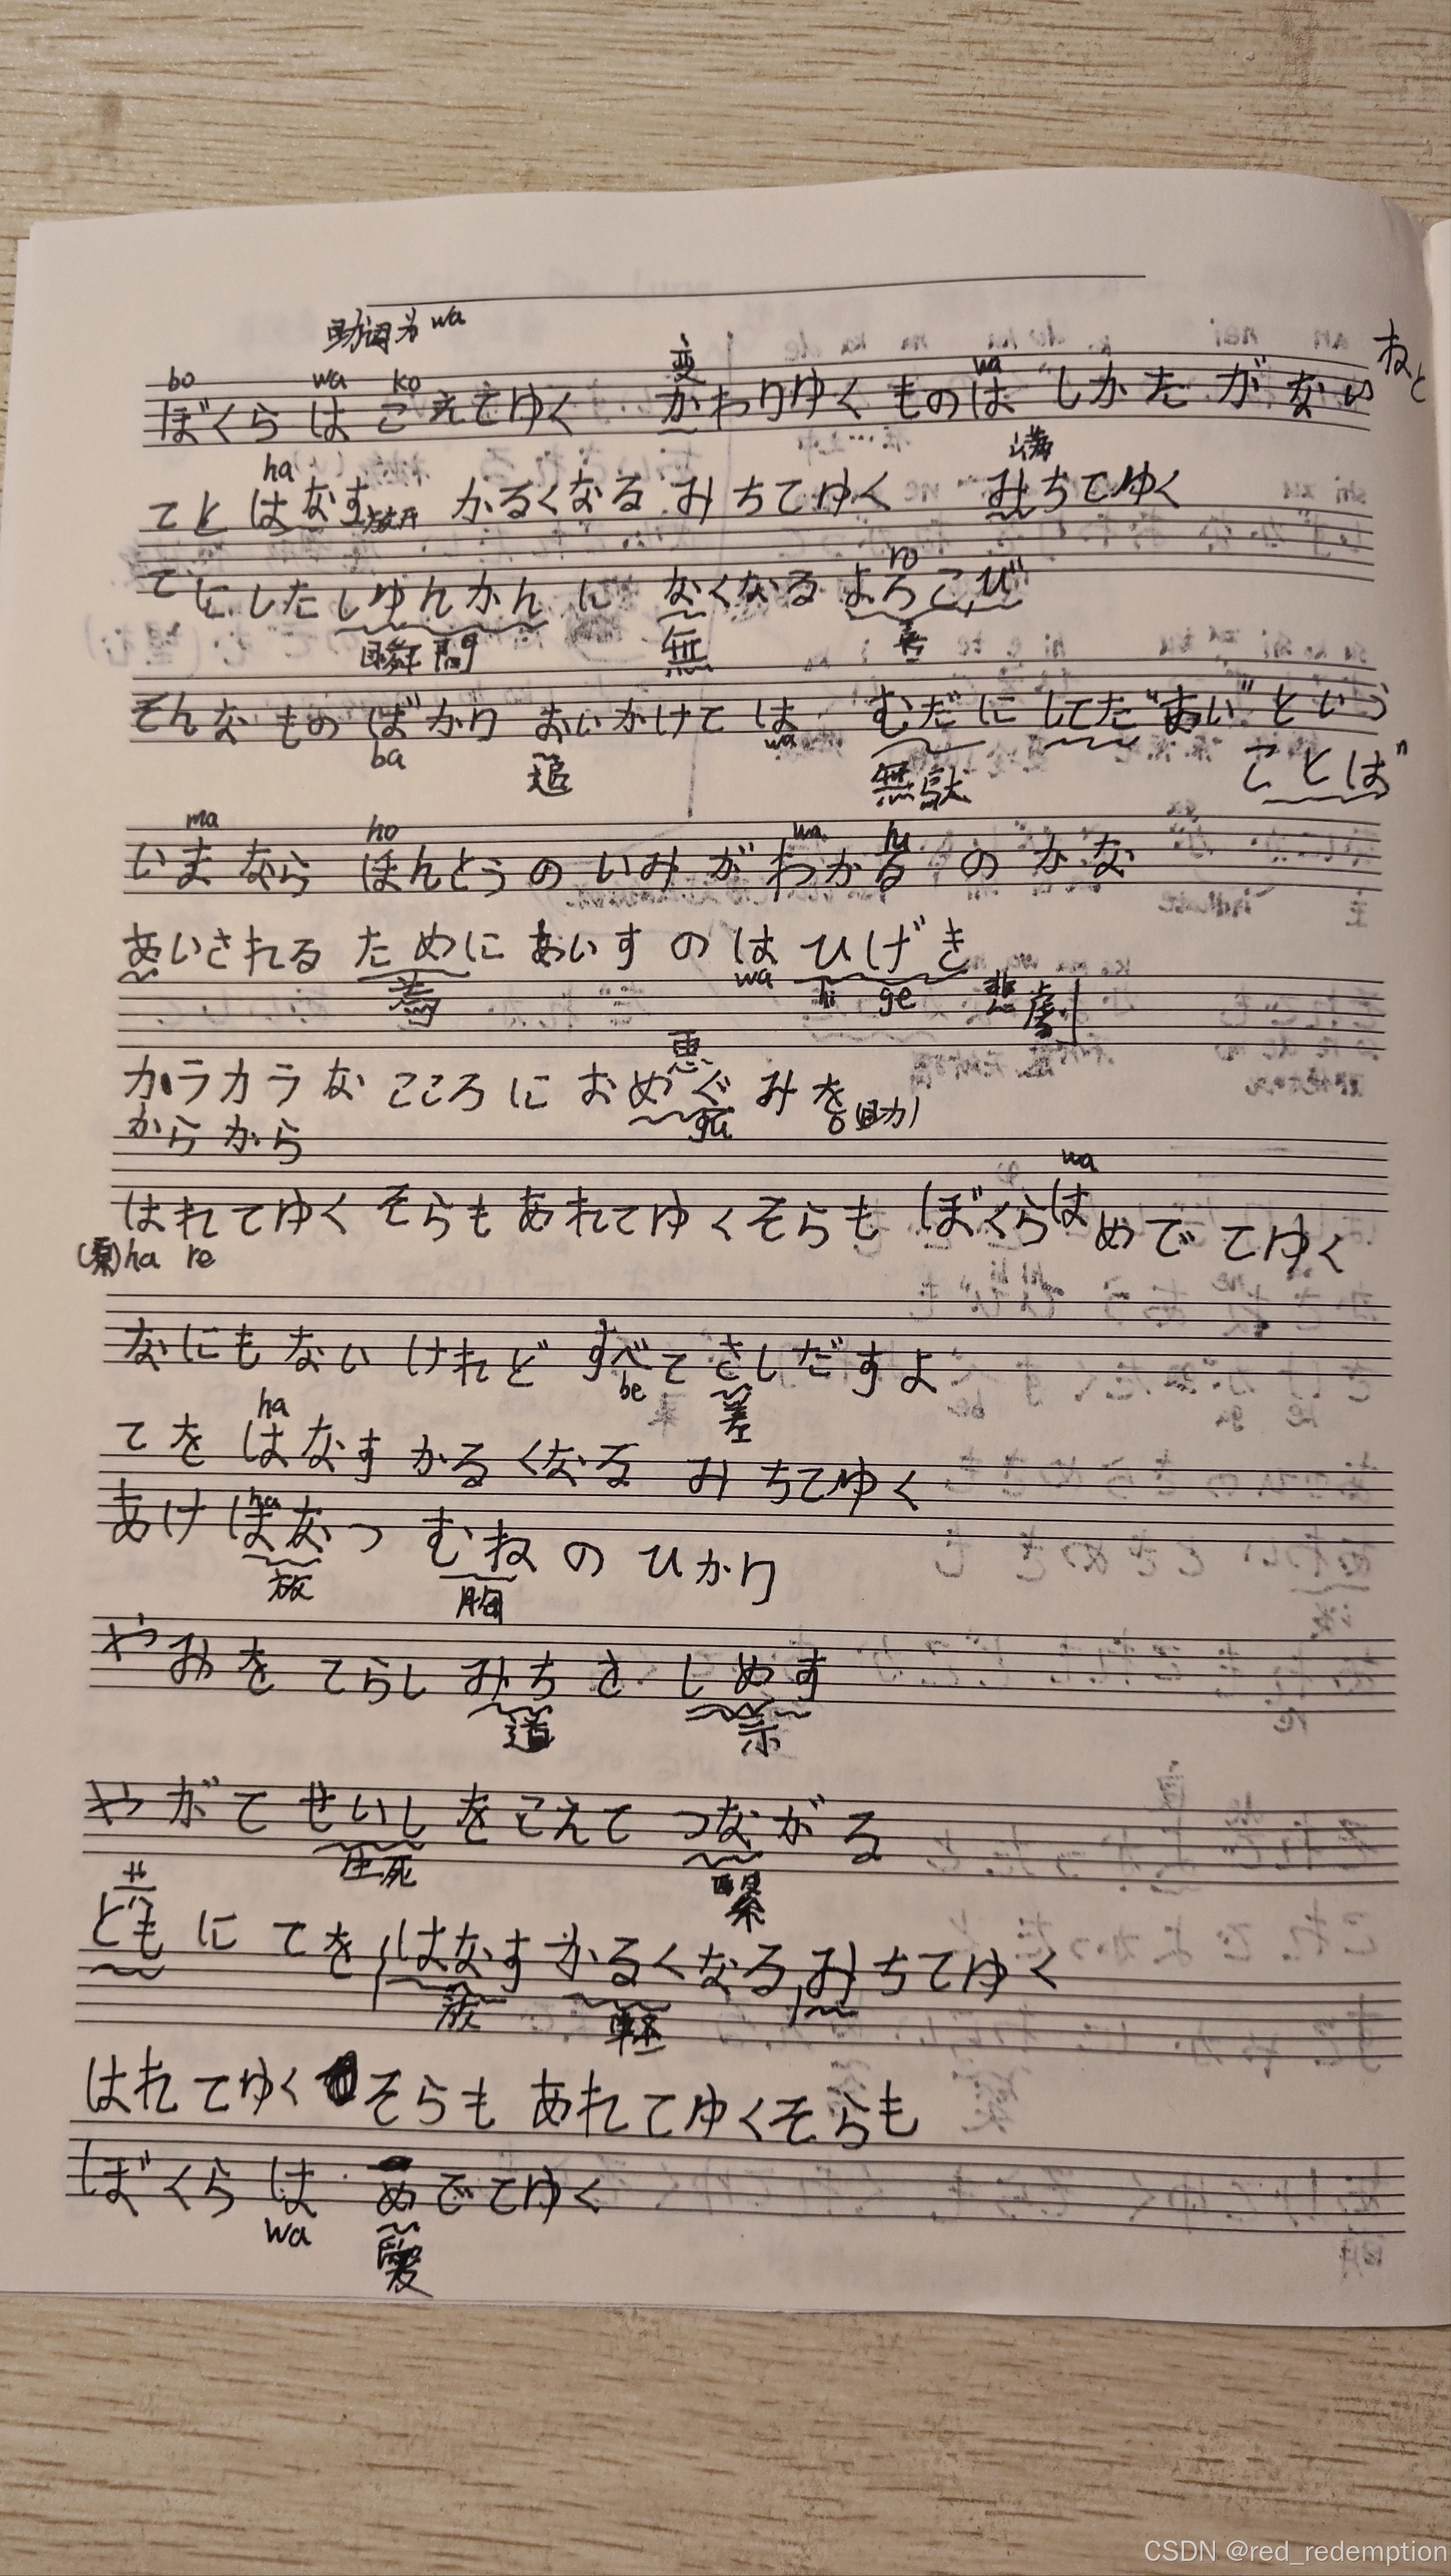 助词为 wa
bo wa ko 変 wa
ぼくら は こえてゆく かわりゆく ものは しかたがない ねと
ha 満
てと はなす 放开 かるくなる みちてゆく みちてゆく
ro
てにした しゆんかん に なくなる よろこび
瞬間 無 喜
そんな もの ばかり おいかけて は むだに してた "あい" という
ba 追 wa 無駄 ことば"
ma ho wa ru
いまなら ほんとうの いみ が わかる のかな
あいされる ために あいす の は ひげき
為 wa hi ge 悲劇
恵
カラカラな こころ に おめぐみを
からから gu o(助)
wa
はれてゆく そらも あれてゆくそらも ぼくらは めで てゆく
ha re
なにも ない けれど すべて さしだすよ
be 差
ha
てを はなす かるくなる みちてゆく
ha
あけ はなつ むねの ひかり
放 胸
やみを てらし みちを しめす
道 示
やがて せいし をこえて つながる
生死 繋
共
ともに てを はなす かるくなる みちてゆく
放 軽
はれてゆく そらも あれてゆくそらも
ぼくら は めでてゆく
wa 愛
CSDN @red_redemption